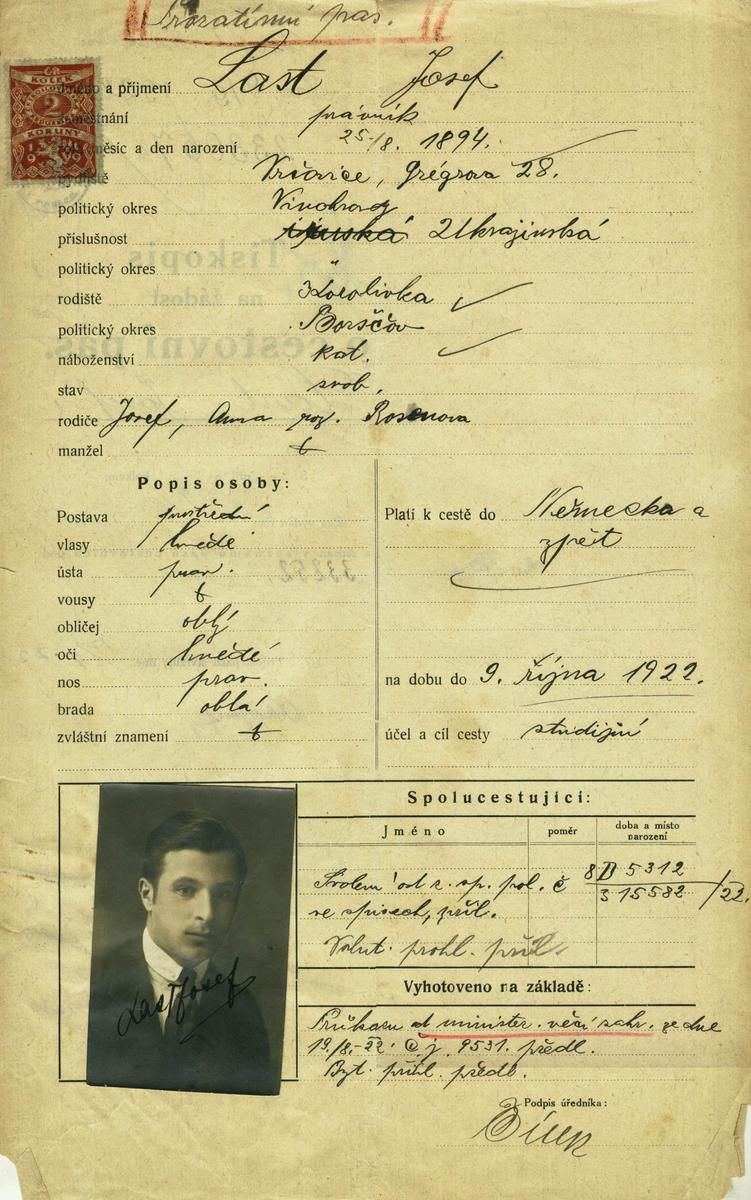 Prozatímní pas.
KOLEK
2
KORUNY
1919
Jméno a příjmení Last Josef
zaměstnání právník
rok, měsíc a den narození 25./8. 1894.
bydliště Vršovice, Grégrova 28.
politický okres Vinohrady
příslušnost Ukrajinská
politický okres "
rodiště Korolivka
politický okres Borsčov
náboženství kat.
stav svob.
rodiče Josef, Anna roz. Rosenova
manžel
Popis osoby:
Postava prostřední
vlasy hnědé
ústa prav.
vousy
obličej oblý
oči hnědé
nos prav.
brada oblá
zvláštní znamení
Platí k cestě do Německa a
zpět
na dobu do 9. října 1922.
účel a cíl cesty studijní
33292
Tiskopis
na žádost
cestovní pas.
Spolucestující:
Jméno poměr doba a místo
narození
Svolení od z. sp. pol. č 8D 5312
315582 /22.
ve spisech, příl.
Valut. prohl. příl.
Last Josef
Vyhotoveno na základě:
Průkazu od minister. věcí zahr. ze dne
19./8.-22. Č j. 9531. předl.
Byt. přihl. předl.
Podpis úředníka: